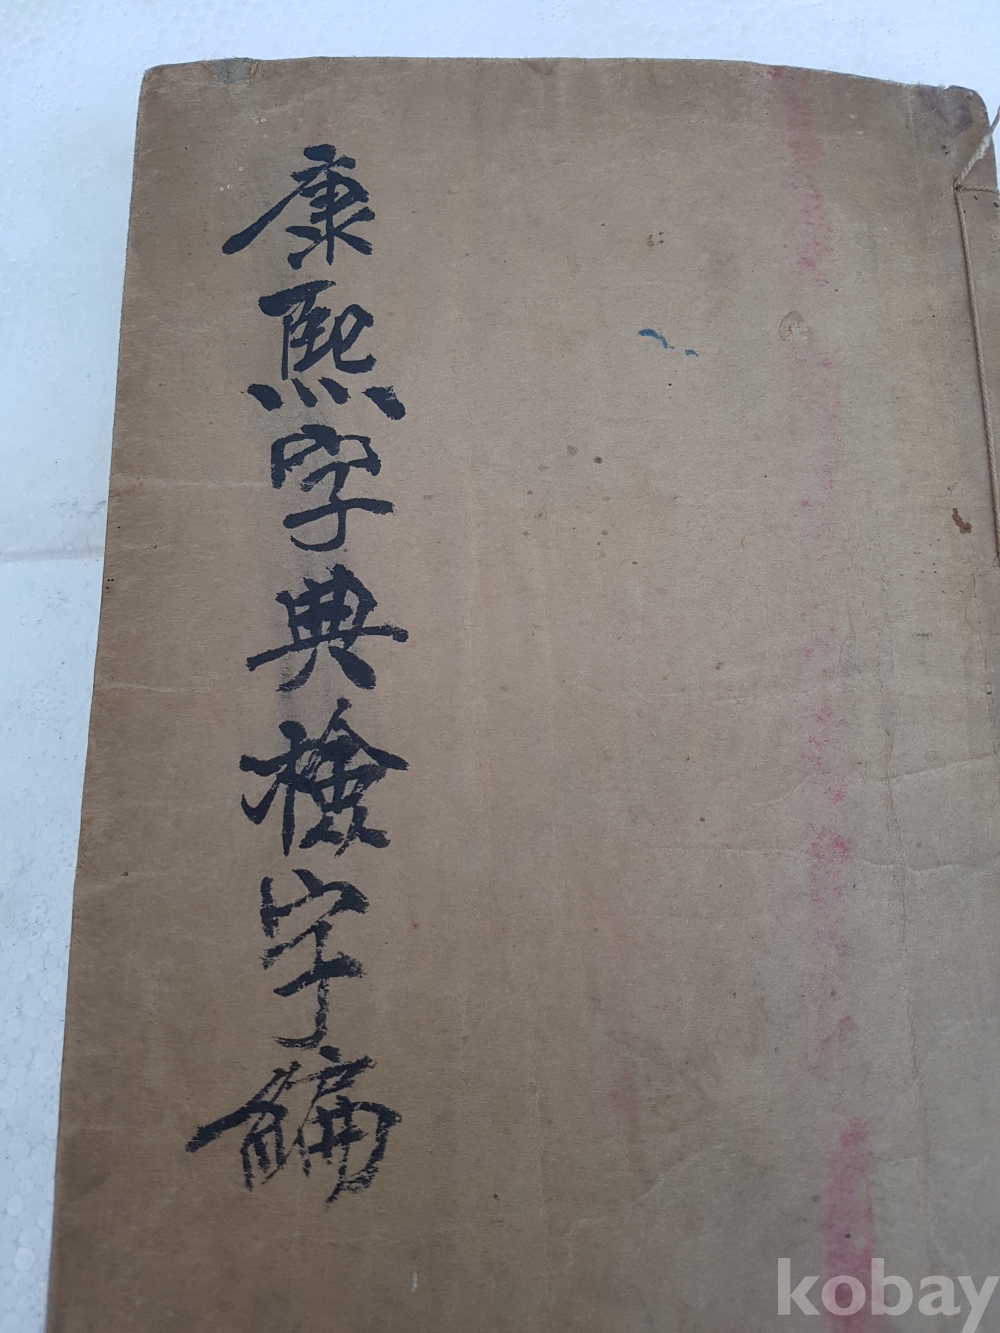 康熙字典檢字編
kobay